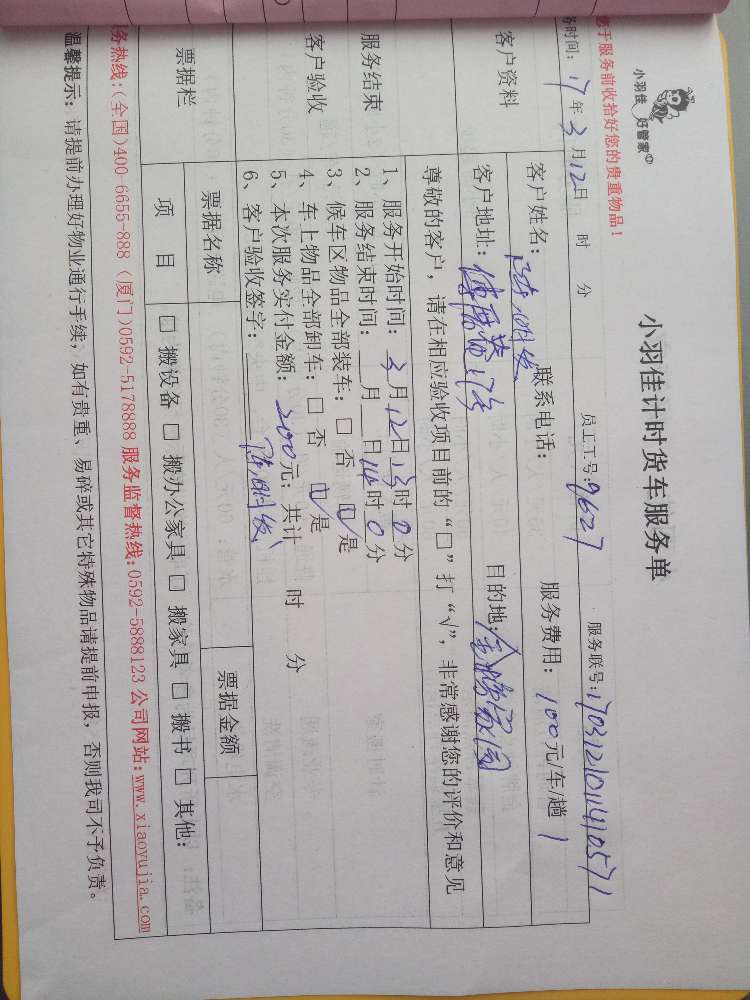 于服务前收拾好您的贵重物品!
小羽佳 好管家
小羽佳计时货车服务单
务时间: 17年3月12日 时 分 员工工号:9627 服务联号:1703121011410571
客户资料
客户姓名: 联系电话: 服务费用: 100元/车/趟 1
客户地址: 17 目的地:
尊敬的客户,请在相应验收项目前的“□”打“√”,非常感谢您的评价和意见
服务结束
客户验收
1、服务开始时间: 3月12日13时0分
2、服务结束时间: 月 日14时0分
3、候车区物品全部装车: □ 否 ☑ 是
4、车上物品全部卸车: □ 否 ☑ 是
5、本次服务实付金额: 200元; 共计 时 分
6、客户验收签字:
票据栏
票据名称 票据金额
项 目 □ 搬设备 □ 搬办公家具 □ 搬家具 □ 搬书 □ 其他:
务热线:(全国)400-6655-888 (厦门)0592-5178888 服务监督热线:0592-5888123 公司网站:www.xiaoyujia.com
温馨提示: 请提前办理好物业通行手续,如有贵重、易碎或其它特殊物品请提前申报,否则我司不予负责。